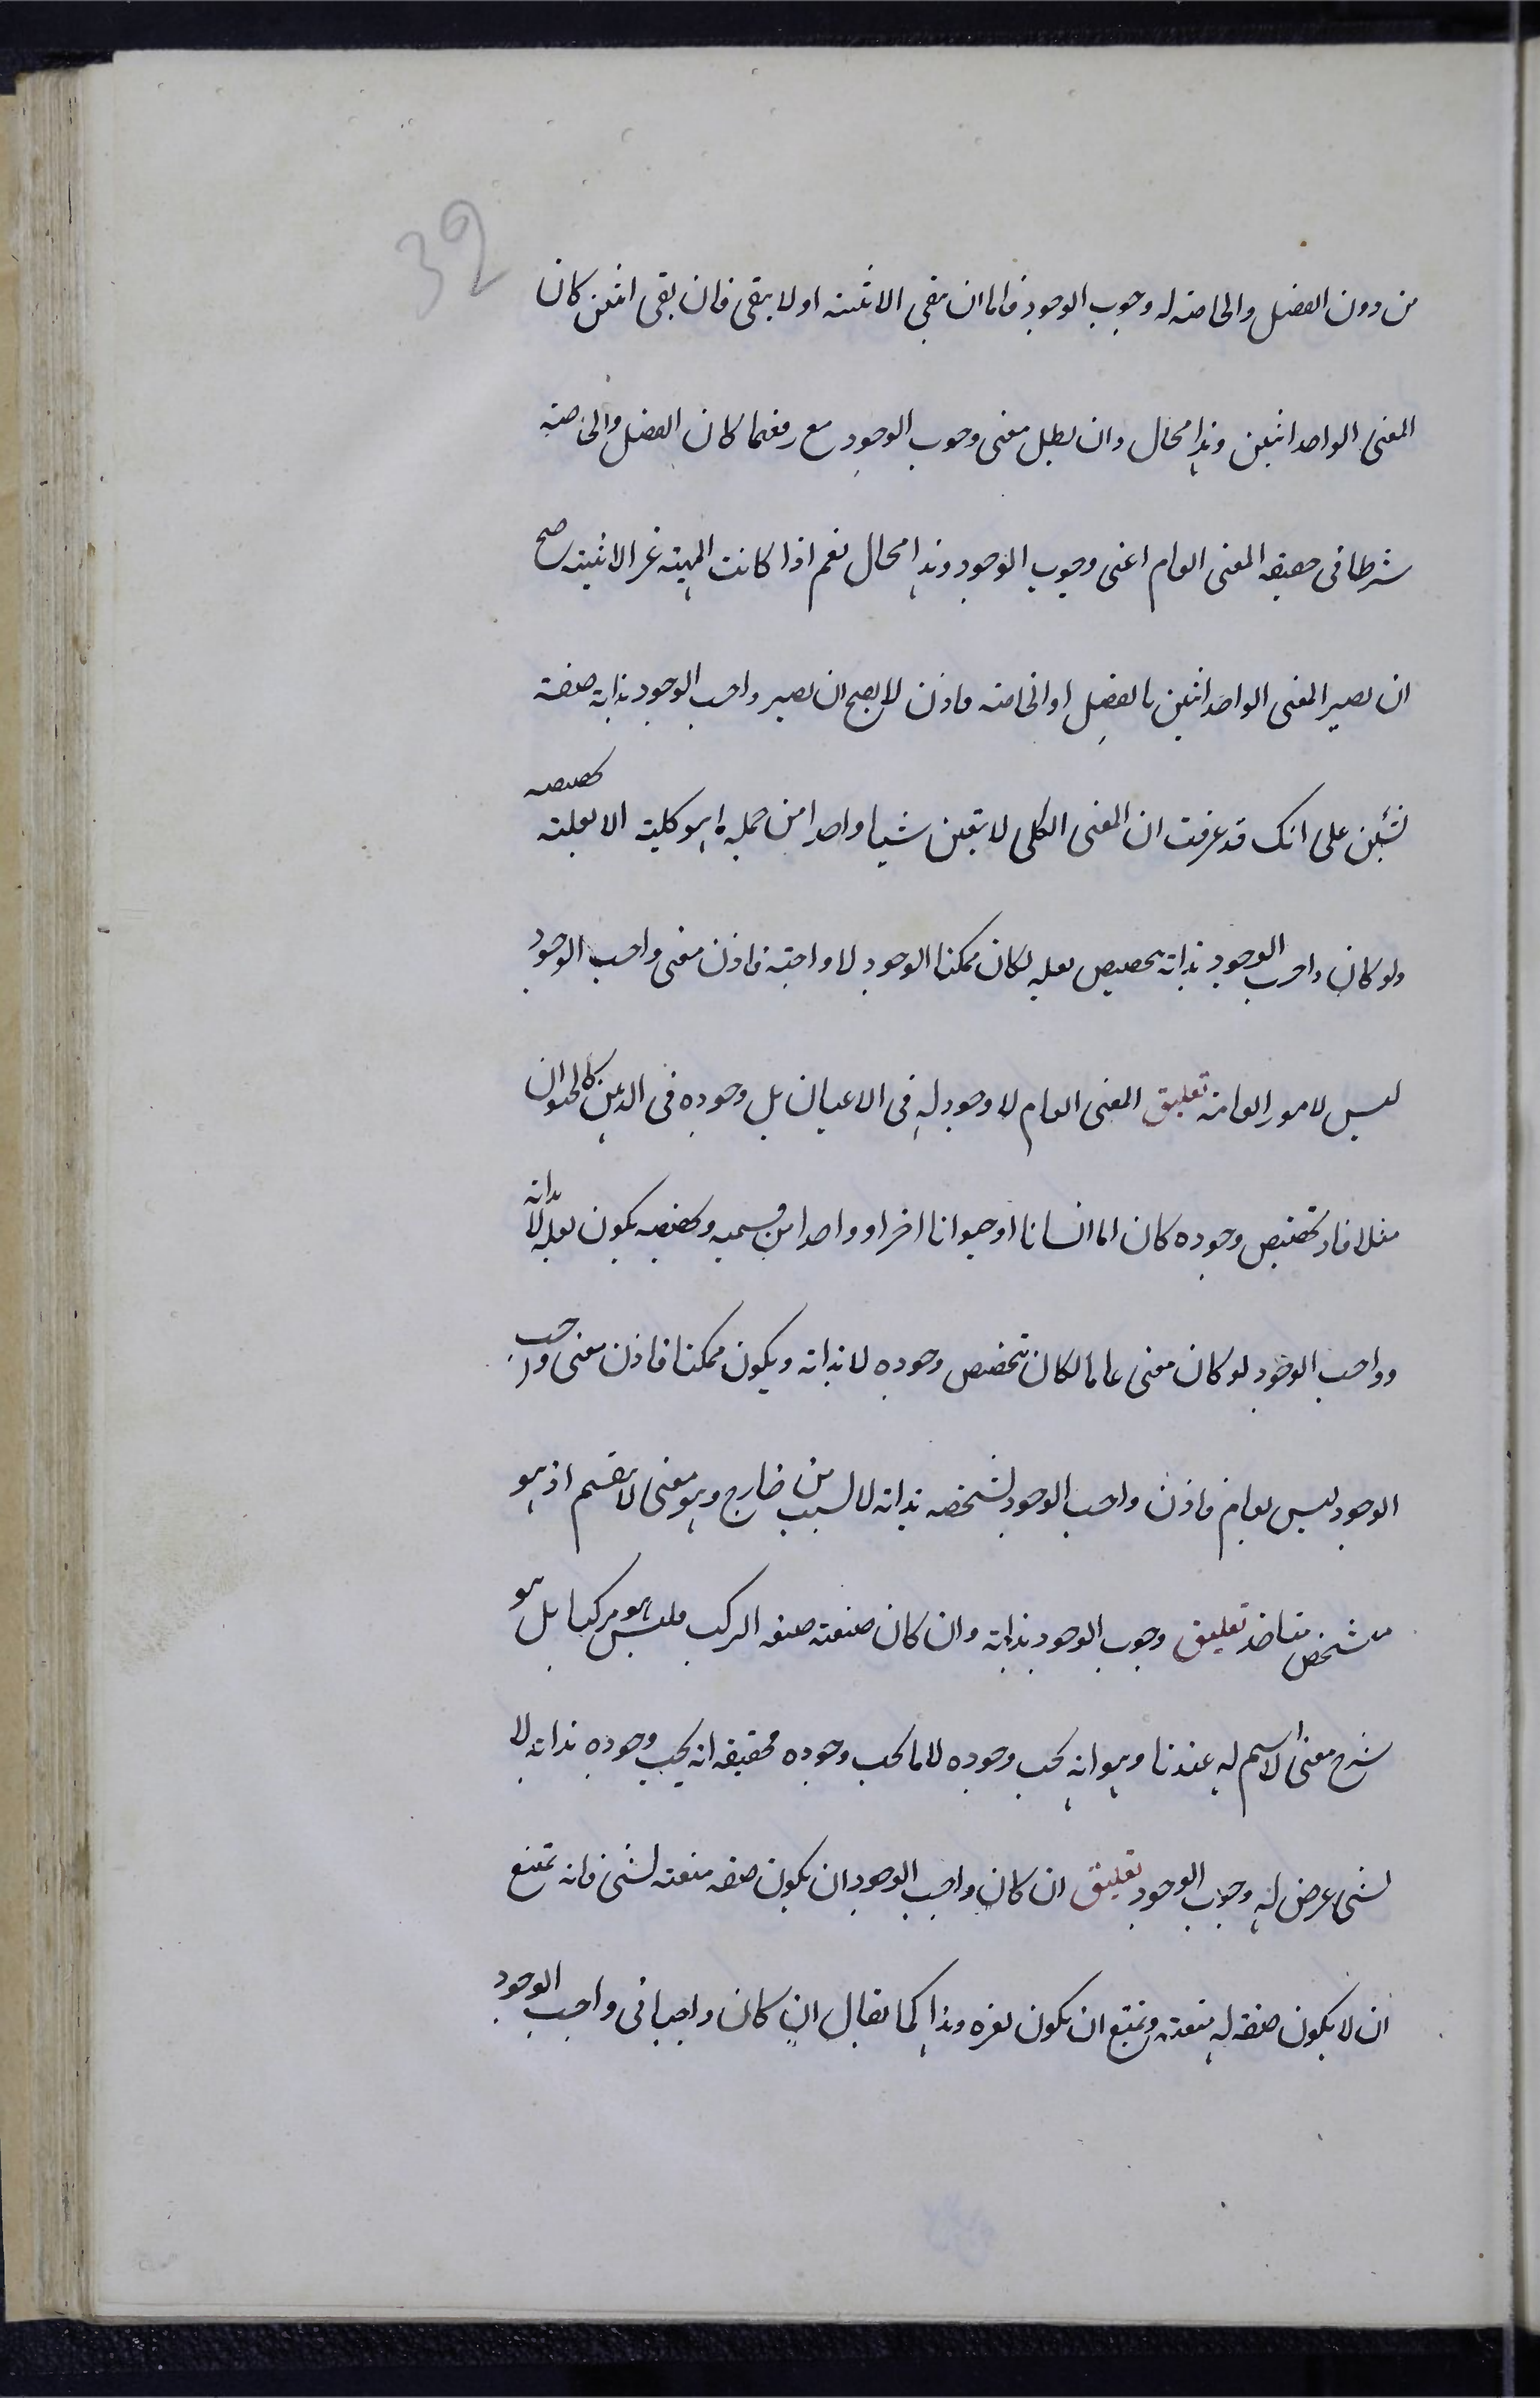 39
من دون الفصل والخاصة له وجوب الوجود فاما ان يبقى الاثنينة او لا يبقى فان بقى اثنين كان
المعنى الواحد اثنين وهذا محال وان بطل معنى وجوب الوجود مع رفعهما كان الفصل والخاصة
شرطا فى حقيقة المعنى العام اعنى وجوب الوجود وهذا محال نعم اذا كانت المهية غير الانية صح
ان يصير المعنى الواحد اثنين بالفصل او الخاصة فاذن لا يصح ان يصير واجب الوجود بذاته صفة
لشيئين على انك قد عرفت ان المعنى الكلى لا يتعين شيئا واحدا من جملة ما هو كليته الا بعلته تخصيصه
ولو كان واجب الوجود بذاته بتخصيص بعلة لكان ممكنا الوجود لا واجبة فاذن معنى واجب الوجود
ليس لامور العامة تعليق المعنى العام لا وجود له فى الاعيان بل وجوده فى الذهن كالحيوان
مثلا فاذ تخصيص وجوده كان اما انسانا او حيوانا اخر او واحدا من قسميه وتخصيصه يكون بعلة لا بذاته
وواجب الوجود لو كان معنى عاما لكان تتخصص وجوده لا بذاته ويكون ممكنا فاذن معنى واجب
الوجود ليس بعام فاذن واجب الوجود تشخصه بذاته لا لسبب من خارج وهو معنى لا ينقسم اذ هو
متشخص بذاته تعليق وجوب الوجود بذاته وان كان صيغته صيغة المركب فليس هو مركبا بل هو
شرح معنى لا اسم له عندنا وهو انه يجب وجوده لا ما يجب وجوده فحقيقة انه يجب وجوده بذاته لا
لشئ عرض له وجوب الوجود تعليق ان كان واجب الوجود ان يكون صفة متعينة لشئ فانه يمتنع
ان لا يكون صفة له متعينة ويمتنع ان يكون لغيره وهذا كما يقال ان كان واجبا فى واجب الوجود